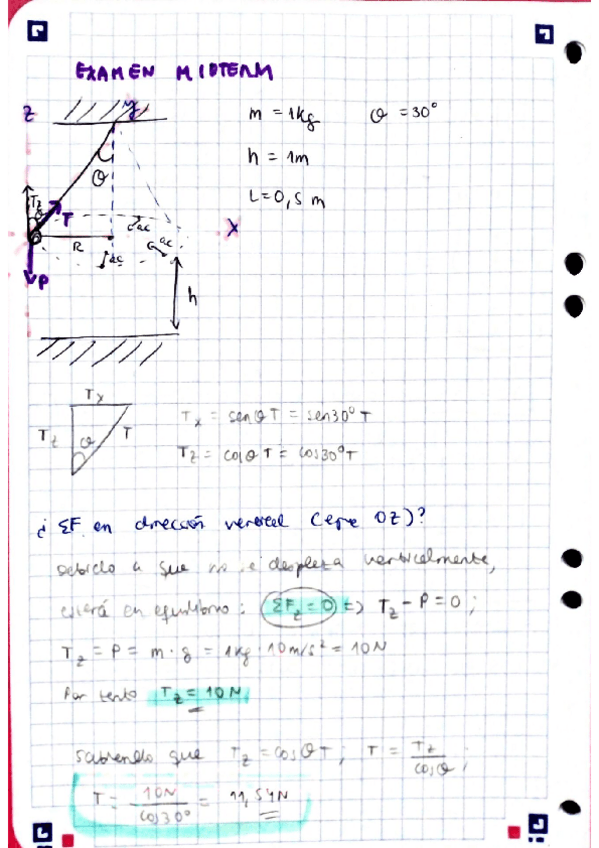 EXAMEN MIDTERM
Z
y
m = 1kg   θ = 30°
h = 1m
L = 0,5 m
θ
Tz
T
R
ac
ac
ac
X
P
h
Tx
Tz θ T
Tx = senθ T = sen30° T
Tz = cosθ T = cos30° T
¿ ΣF en dirección vertical (eje OZ)?
debido a que no se desplaza verticalmente,
estará en equilibrio : ΣFz = 0 => Tz - P = 0 ;
Tz = P = m · g = 1kg · 10m/s² = 10N
Por tanto Tz = 10N
sabiendo que Tz = cosθ T ; T = Tz / cosθ ;
T = 10N / cos30° = 11,54N